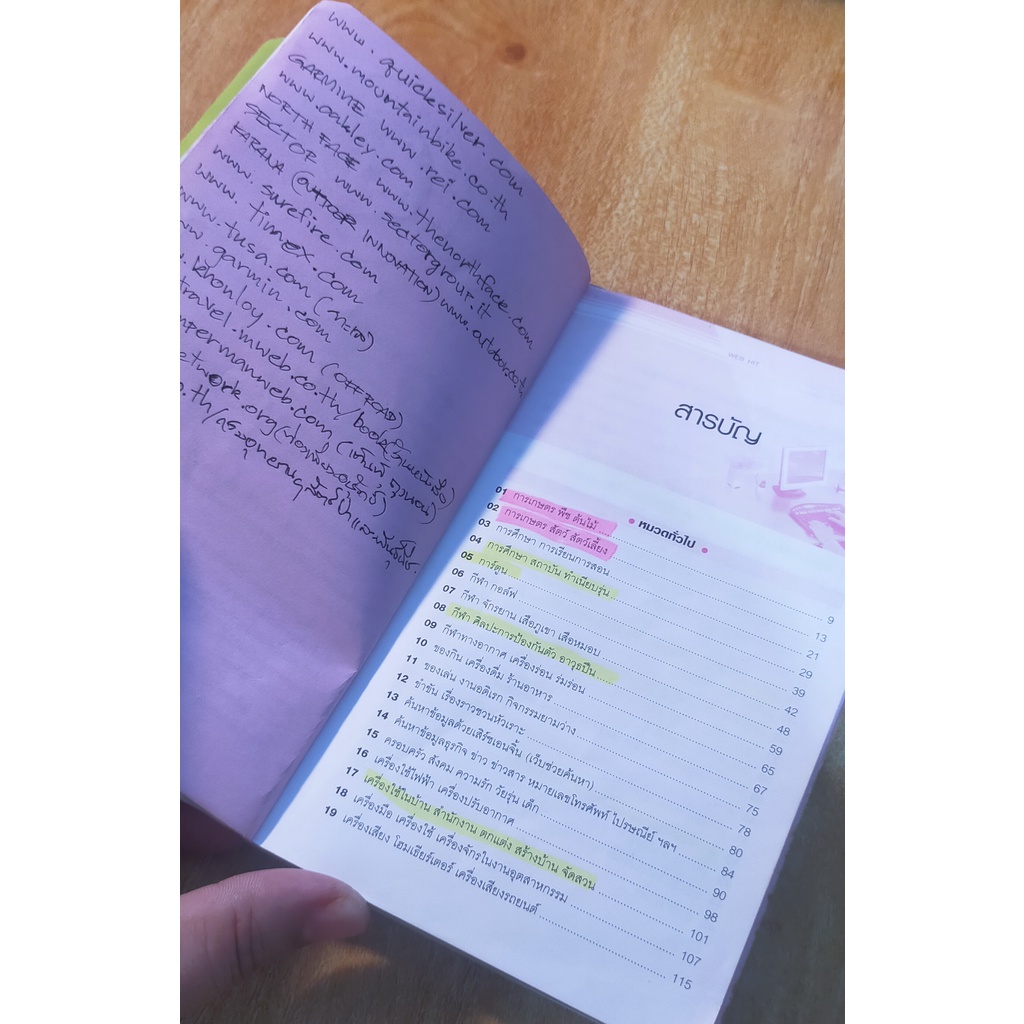 www.quicksilver.com
www.mountainbike.co.th
GARMINE www.rei.com
www.oakley.com
NORTH FACE www.thenorthface.com
SECTOR www.sectorgroup.it
KARANA (OUTDOOR INNOVATION) www.outdoor.co.th
www.surefire.com
www.timex.com
www.tusa.com (ทะเล)
www.garmin.com
.khonloy.com (OFFROAD)
travel.mweb.co.th/book
permanweb.com
etwork.org
o.th/
WEB HIT
สารบัญ
• หมวดทั่วไป •
01 การเกษตร พืช ต้นไม้ .... 9
02 การเกษตร สัตว์ สัตว์เลี้ยง 13
03 การศึกษา การเรียนการสอน 21
04 การศึกษา สถาบัน ทำเนียบรุ่น 29
05 การ์ตูน 39
06 กีฬา กอล์ฟ 42
07 กีฬา จักรยาน เสือภูเขา เสือหมอบ 48
08 กีฬา ศิลปะการป้องกันตัว อาวุธปืน 59
09 กีฬาทางอากาศ เครื่องร่อน ร่มร่อน 65
10 ของกิน เครื่องดื่ม ร้านอาหาร 67
11 ของเล่น งานอดิเรก กิจกรรมยามว่าง 75
12 ขำขัน เรื่องราวชวนหัวเราะ 78
13 ค้นหาข้อมูลด้วยเสิร์ชเอนจิ้น (เว็บช่วยค้นหา) 80
14 ค้นหาข้อมูลธุรกิจ ข่าว ข่าวสาร หมายเลขโทรศัพท์ ไปรษณีย์ ฯลฯ 84
15 ครอบครัว สังคม ความรัก วัยรุ่น เด็ก 90
16 เครื่องใช้ไฟฟ้า เครื่องปรับอากาศ 98
17 เครื่องใช้ในบ้าน สำนักงาน ตกแต่ง สร้างบ้าน จัดสวน 101
18 เครื่องมือ เครื่องใช้ เครื่องจักรในงานอุตสาหกรรม 107
19 เครื่องเสียง โฮมเธียร์เตอร์ เครื่องเสียงรถยนต์ 115